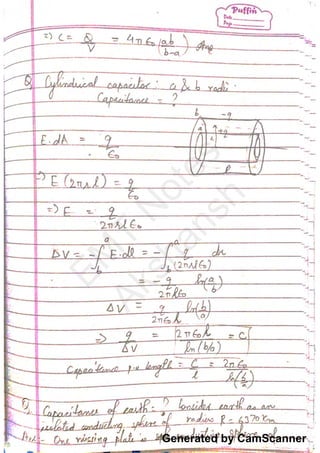 Puffin
Date
Page
=) C = Q/V = 4π ε₀ (ab/(b-a)) Ans
Q, Cylindrical capacitor: a & b radii.
Capacitance = ?
b -q
a +q
l
E.dA = q/ε₀
=) E (2πrl) = q/ε₀
=) E = q/(2πrlε₀)
ΔV = -∫_b^a E.dl = -∫_b^a q/(2πrlε₀) dr
= -q/(2πlε₀) ln(a/b)
ΔV = q/(2πε₀l) ln(b/a)
=> q/ΔV = 2πε₀l/ln(b/a) = C
Capacitance per length = C/l = 2πε₀/ln(b/a)
Q, Capacitance of earth = ? Consider earth as an
isolated conducting sphere of radius R = 6370 km
Ans:- One missing plate is
EM Notes
Akshansh
Generated by CamScanner